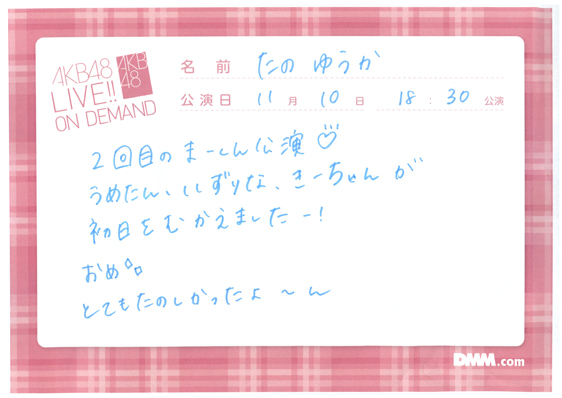 AKB48
LIVE!!
ON DEMAND
AKB
48
名前 たの ゆうか
公演日 11月 10日 18:30 公演
2回目のまーしん公演♡
うめたん、いずりな、きーちゃんが
初日をむかえましたー!
おめ°。
とてもたのしかったよ〜ん
DMM.com